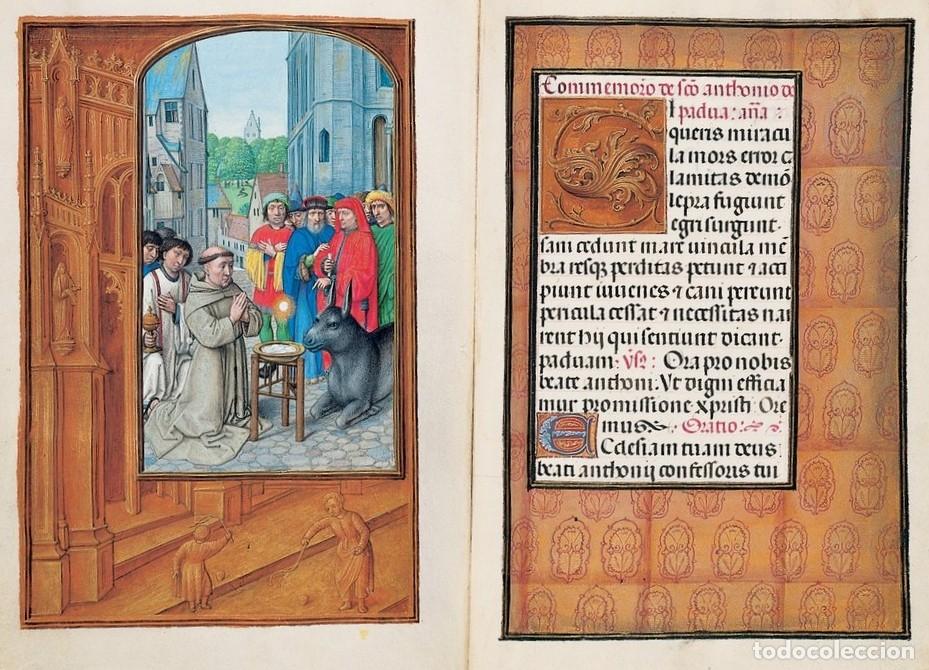 Commemoro de scõ anthonio de
SI padua: aña
queris miracu
la mors error c
lamitas demõ
lepra fugiunt
egri surgunt.
sani cedunt mare vincula mẽ
bra resqz perditas petunt ⁊ acci
piunt iuvenes ⁊ cani pereunt
pericula cessat ⁊ necessitas nar
rent hij qui sentiunt dicant.
paduani: Vs: Ora pro nobis
beate anthoni. Ut digni efficia
mur promissione xpristi Ore
mus Oratio:
ECclesiam tuam deus
beati anthonij confessoris tui
todocoleccion